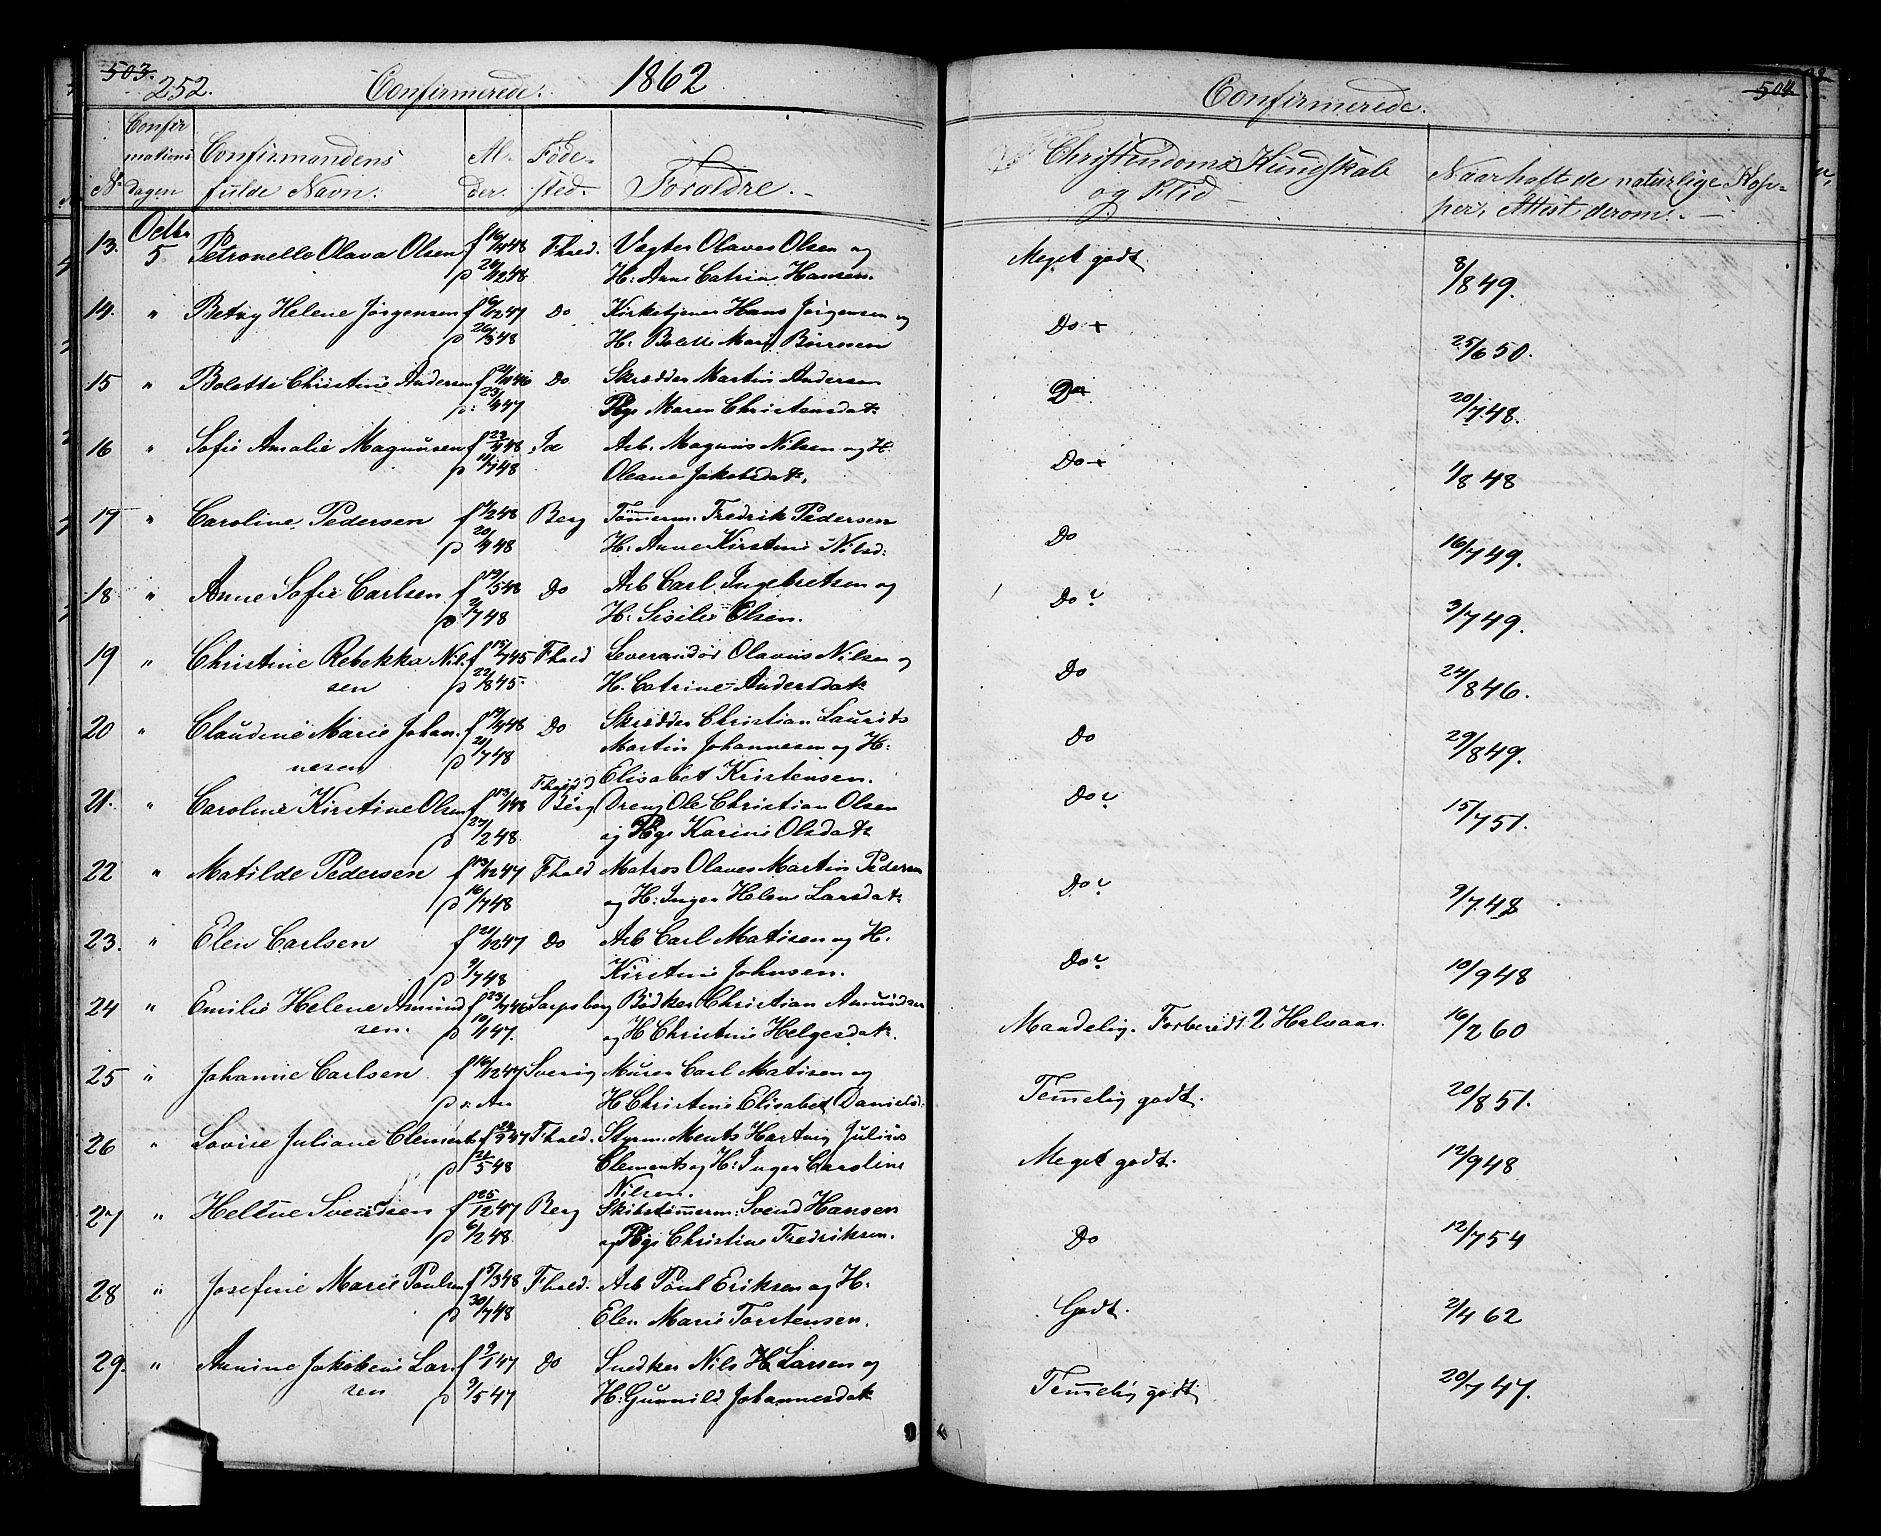 503.
252.
Confirmerede. 1862
Confirmationsdagen
No
Confirmandens fulde Navn.
Alder.
Fødested
Forældre.
13. Octbr 5 Petronelle Olava Olsen f 16/4 48 Fhald. Vagter Olaves Olsen og
p 26/12 48 H: Anne Catrine Hansen.
14. " Betzy Helene Jørgensen f 9/12 47 Do Kirketjener Hans Jørgensen og
p 26/3 48 H. Bolette Marg Børresen
15 " Bolette Christine Andersen f 46 Do Skrædder Martin Andersen
p: 23/4 47 Pige Maren Christensdatr
16 " Sofie Amalie Magnusen f 22/4 48 Id Arb. Magnus Nilsen og H.
p 48 Oleane Jakobsdatr.
17 " Caroline Pedersen f 48 Berg Tømmerm. Fredrik Pedersen
p 20/4 48 H. Anne Kirstine Nilsd:
18 " Anne Sofie Carlsen f 19/5 48 Do Arb Carl Ingebretsen og
p 2/7 48 H: Sisilie Olsen.
19 " Christine Rebekka Nil- f 15/7 45 Fhald Leverandør Olavus Nilsen og
sen p 22/8 45. H. Catrine Andersdatr
20 " Claudine Marie Johan- f 19/4 48 Do Skrædder Christian Laurits
nesen p 21/7 48 Martin Johannesen og H:
Elisabet Kristensen.
21. " Caroline Kirstine Olsen f 13/1 48 Fhald Berg Dreng Ole Christian Olsen
p 27/2 48. og Pige Karine Olsdatr
22 " Matilde Pedersen f 13/12 47 Fhald Matros Olaves Martin Pedersen
p 16/7 48 og H: Inger Helene Larsdatr
23. " Elen Carlsen f 21/12 47 Do Arb Carl Matisen og H.
p 9/7 48 Kirstine Johnsen.
24 " Emilie Helene Asmund- f 23/7 46 Sarpsborg Bødker Christian Amundsen
sen. p 10/1 47. og H Christine Helgesdatr.
25 " Johanne Carlsen f 16/12 47 Sverig Murer Carl Matisen og
p s. Aar H Christine Elisabet Danielsd:
26 " Lovise Juliane Clements f 29/9 47 Fhald. Styrm. Ments Hartvig Julius
p 21/5 48 Clements og H: Inger Caroline
Nilsen.
27 " Heltne Svendsen f 25/12 47 Berg Skibstømmerm: Svend Hansen
p 6/2 48 og Pige Christine Fredriksen.
28 " Josefine Marie Paulsen f 5/3 48 Fhald. Arb Paul Eriksen og H:
p 30/4 48 Elen Marie Torstensen.
29. " Annine Jakobine Lar- f 9/1 47 Do Snedker Nils H Larsen og
sen p 9/5 47 H: Gunnild Johannesdatr
504
Confirmerede.
Christendoms Kundskab og Flid
Naar holt de naturlige Kopper, Attest derom.
Meget godt 8/8 49.
Do 25/6 50.
Do 20/7 48.
Do 1/8 48
Do 16/7 49.
Do 3/7 49.
Do 24/8 46.
Do 29/8 49.
Do 15/7 51.
Do 9/7 48
Do 10/9 48
Maadelig. Forberedt 2 Halvaar. 16/2 60
Temmelig godt. 20/8 51.
Meget godt. 12/9 48
Do 12/7 54
Godt. 2/4 62
Temmelig godt 20/7 47.